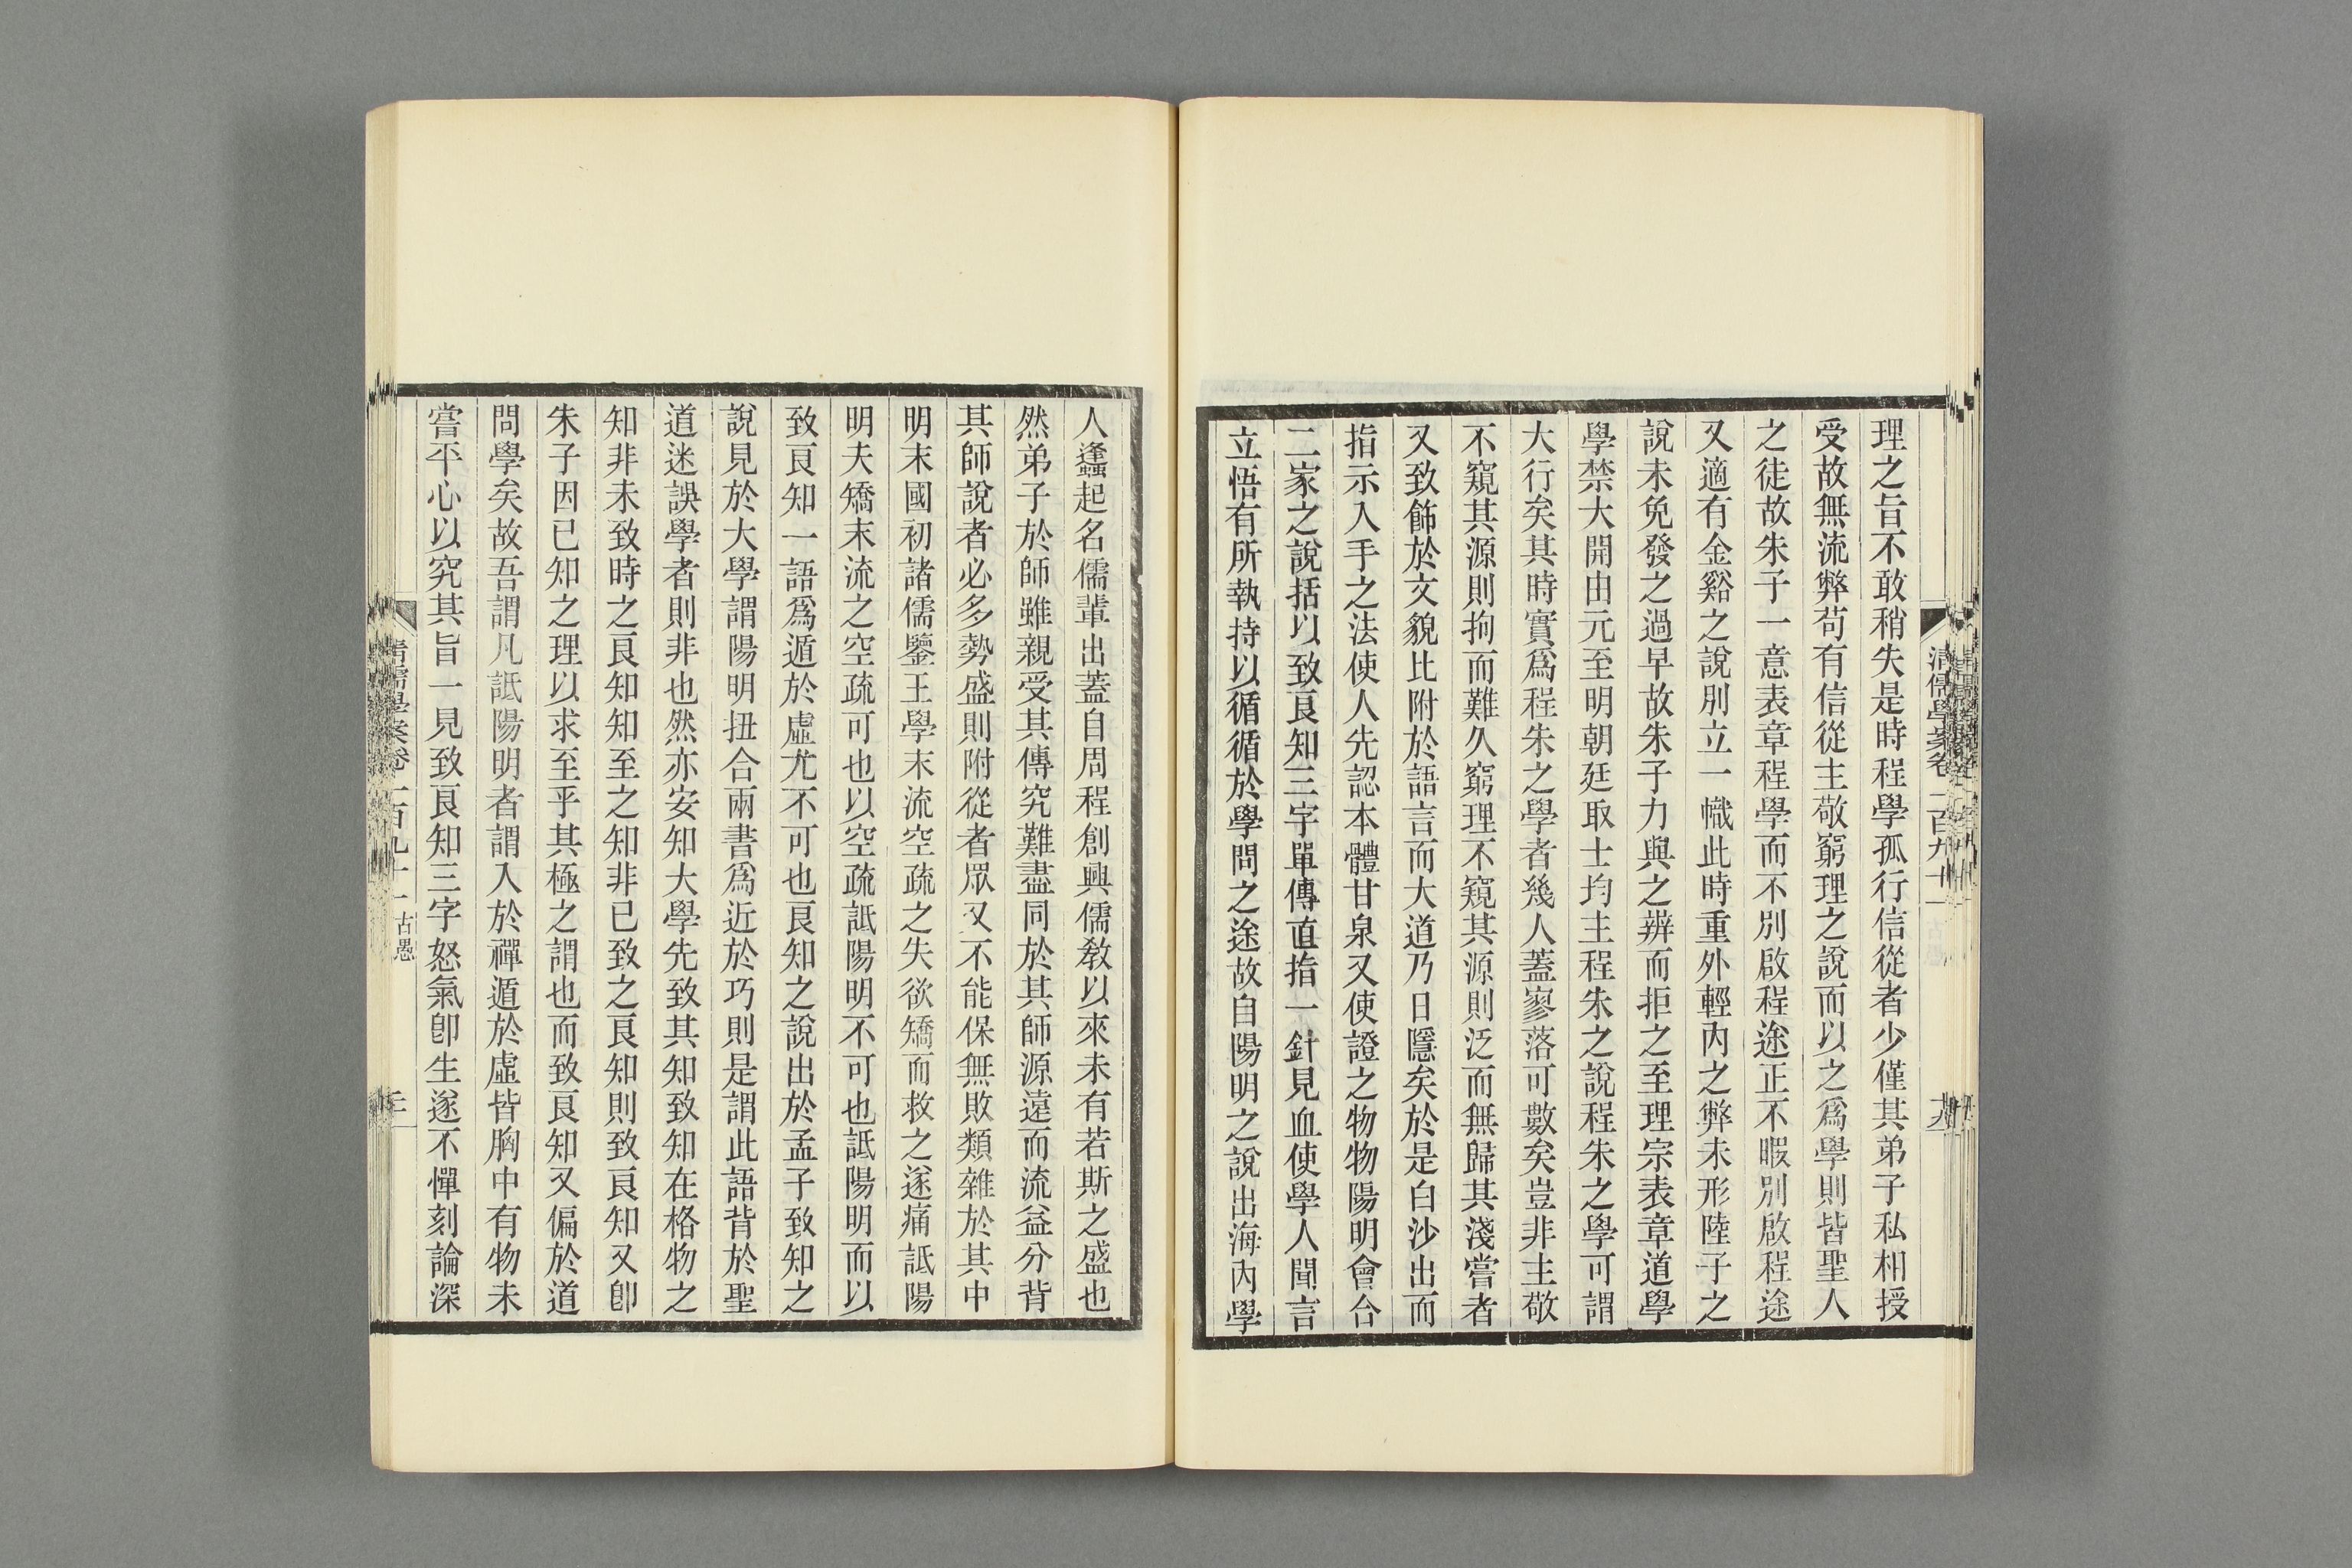 理之旨不敢稍失是時程學孤行信從者少僅其弟子私相授
受故無流弊苟有信從主敬窮理之說而以之爲學則皆聖人
之徒故朱子一意表章程學而不別啟程途正不暇別啟程途
又適有金谿之說別立一幟此時重外輕內之弊未形陸子之
說未免發之過早故朱子力與之辨而拒之至理宗表章道學
學禁大開由元至明朝廷取士均主程朱之說程朱之學可謂
大行矣其時實爲程朱之學者幾人蓋寥落可數矣豈非主敬
不窺其源則拘而難久窮理不窺其源則泛而無歸其淺嘗者
又致飾於文貌比附於語言而大道乃日隱矣於是白沙出而
指示入手之法使人先認本體甘泉又使證之物物陽明會合
二家之說括以致良知三字單傳直指一針見血使學人聞言
立悟有所執持以循循於學問之途故自陽明之說出海內學
人蠭起名儒輩出蓋自周程創興儒教以來未有若斯之盛也
然弟子於師雖親受其傳究難盡同於其師源遠而流益分背
其師說者必多勢盛則附從者眾又不能保無敗類雜於其中
明末國初諸儒鑒王學末流空疏之失欲矯而救之遂痛詆陽
明夫矯末流之空疏可也以空疏詆陽明不可也詆陽明而以
致良知一語爲遁於虛尤不可也良知之說出於孟子致知之
說見於大學謂陽明扭合兩書爲近於巧則是謂此語背於聖
道迷誤學者則非也然亦安知大學先致其知知致知在格物之
知非未致時之良知知至之知非已致之良知則致良知又卽
朱子因已知之理以求至乎其極之謂也而致良知又偏於道
問學矣故吾謂凡詆陽明者謂入於禪遁於虛皆胸中有物未
嘗平心以究其旨一見致良知三字怒氣卽生遂不憚刻論深
清儒學案卷一百九十一 古愚